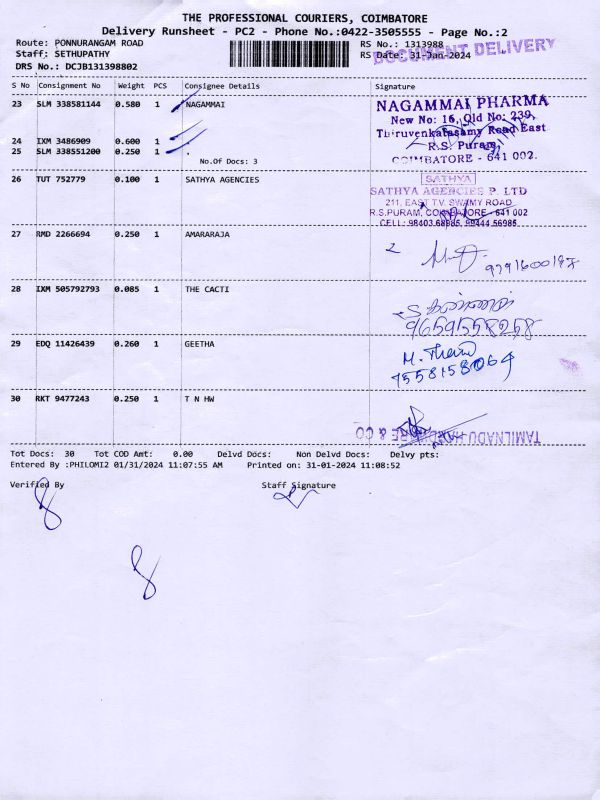 THE PROFESSIONAL COURIERS, COIMBATORE
Delivery Runsheet - PC2 - Phone No.:0422-3505555 - Page No.:2
Route: PONNURANGAM ROAD
RS No.: 1313988
DOCUMENT DELIVERY
Staff: SETHUPATHY
RS Date: 31-Jan-2024
DRS No.: DCJB131398802
S No Consignment No Weight PCS Consignee Details Signature
23 SLM 338581144 0.580 1 NAGAMMAI
NAGAMMAI PHARMA
New No: 16, Old No: 239,
Thiruvenkatasamy Road East
R.S. Puram,
COIMBATORE - 641 002.
24 IXM 3486909 0.600 1
25 SLM 338551200 0.250 1
No.Of Docs: 3
26 TUT 752779 0.100 1 SATHYA AGENCIES
SATHYA
SATHYA AGENCIES P. LTD
211, EAST T.V. SWAMY ROAD
R.S.PURAM, COIMBATORE - 641 002
CELL: 98403 68985, 99444 56985
27 RMD 2266694 0.250 1 AMARARAJA
2
28 IXM 505792793 0.085 1 THE CACTI
29 EDQ 11426439 0.260 1 GEETHA
7558158064
30 RKT 9477243 0.250 1 T N HW
TAMILNADU HARDWARE & CO
Tot Docs: 30 Tot COD Amt: 0.00 Delvd Docs: Non Delvd Docs: Delvy pts:
Entered By :PHILOMI2 01/31/2024 11:07:55 AM Printed on: 31-01-2024 11:08:52
Verified By
Staff Signature